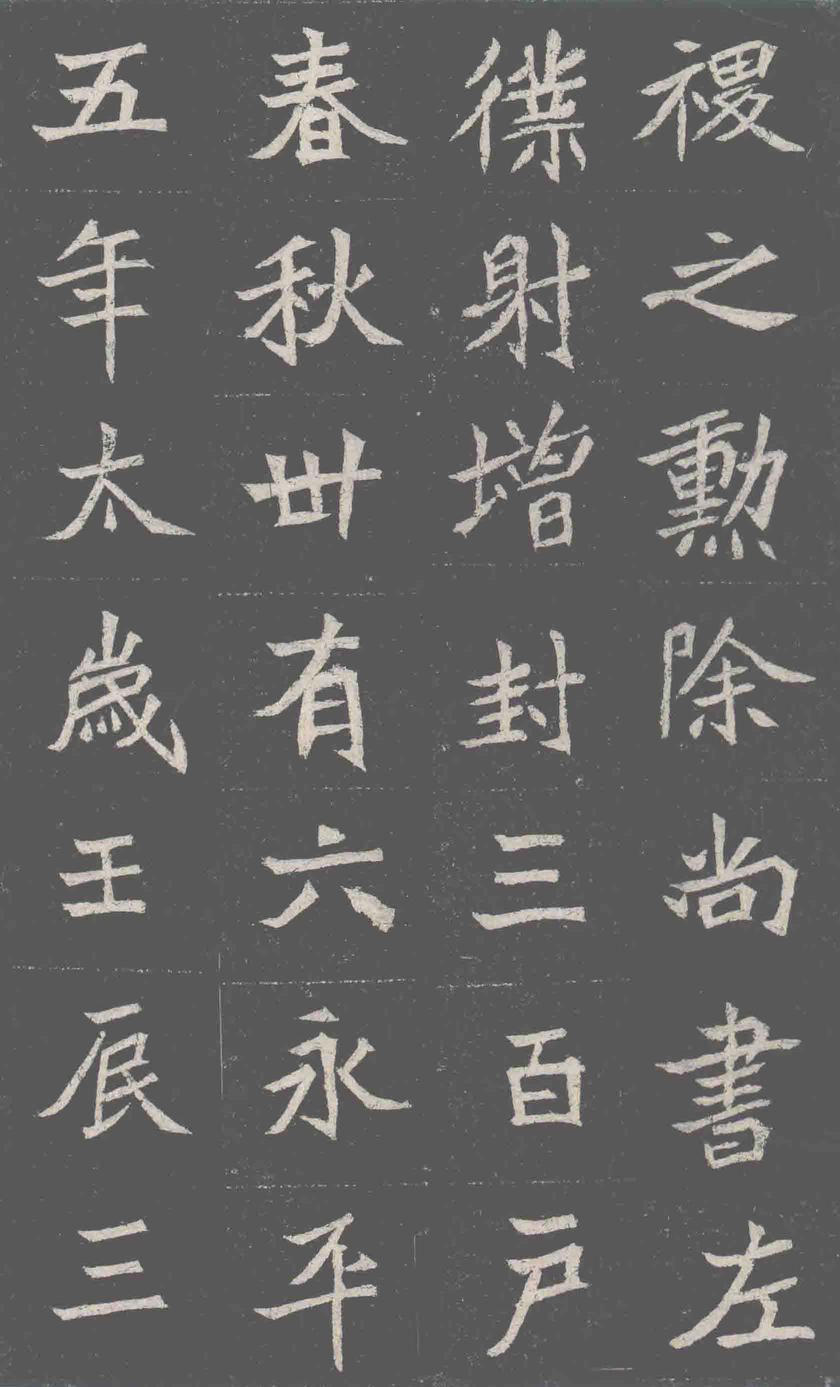 禝之勲除尚書左
僕射增封三百戶
春秋卌有六永平
五年太歲壬辰三